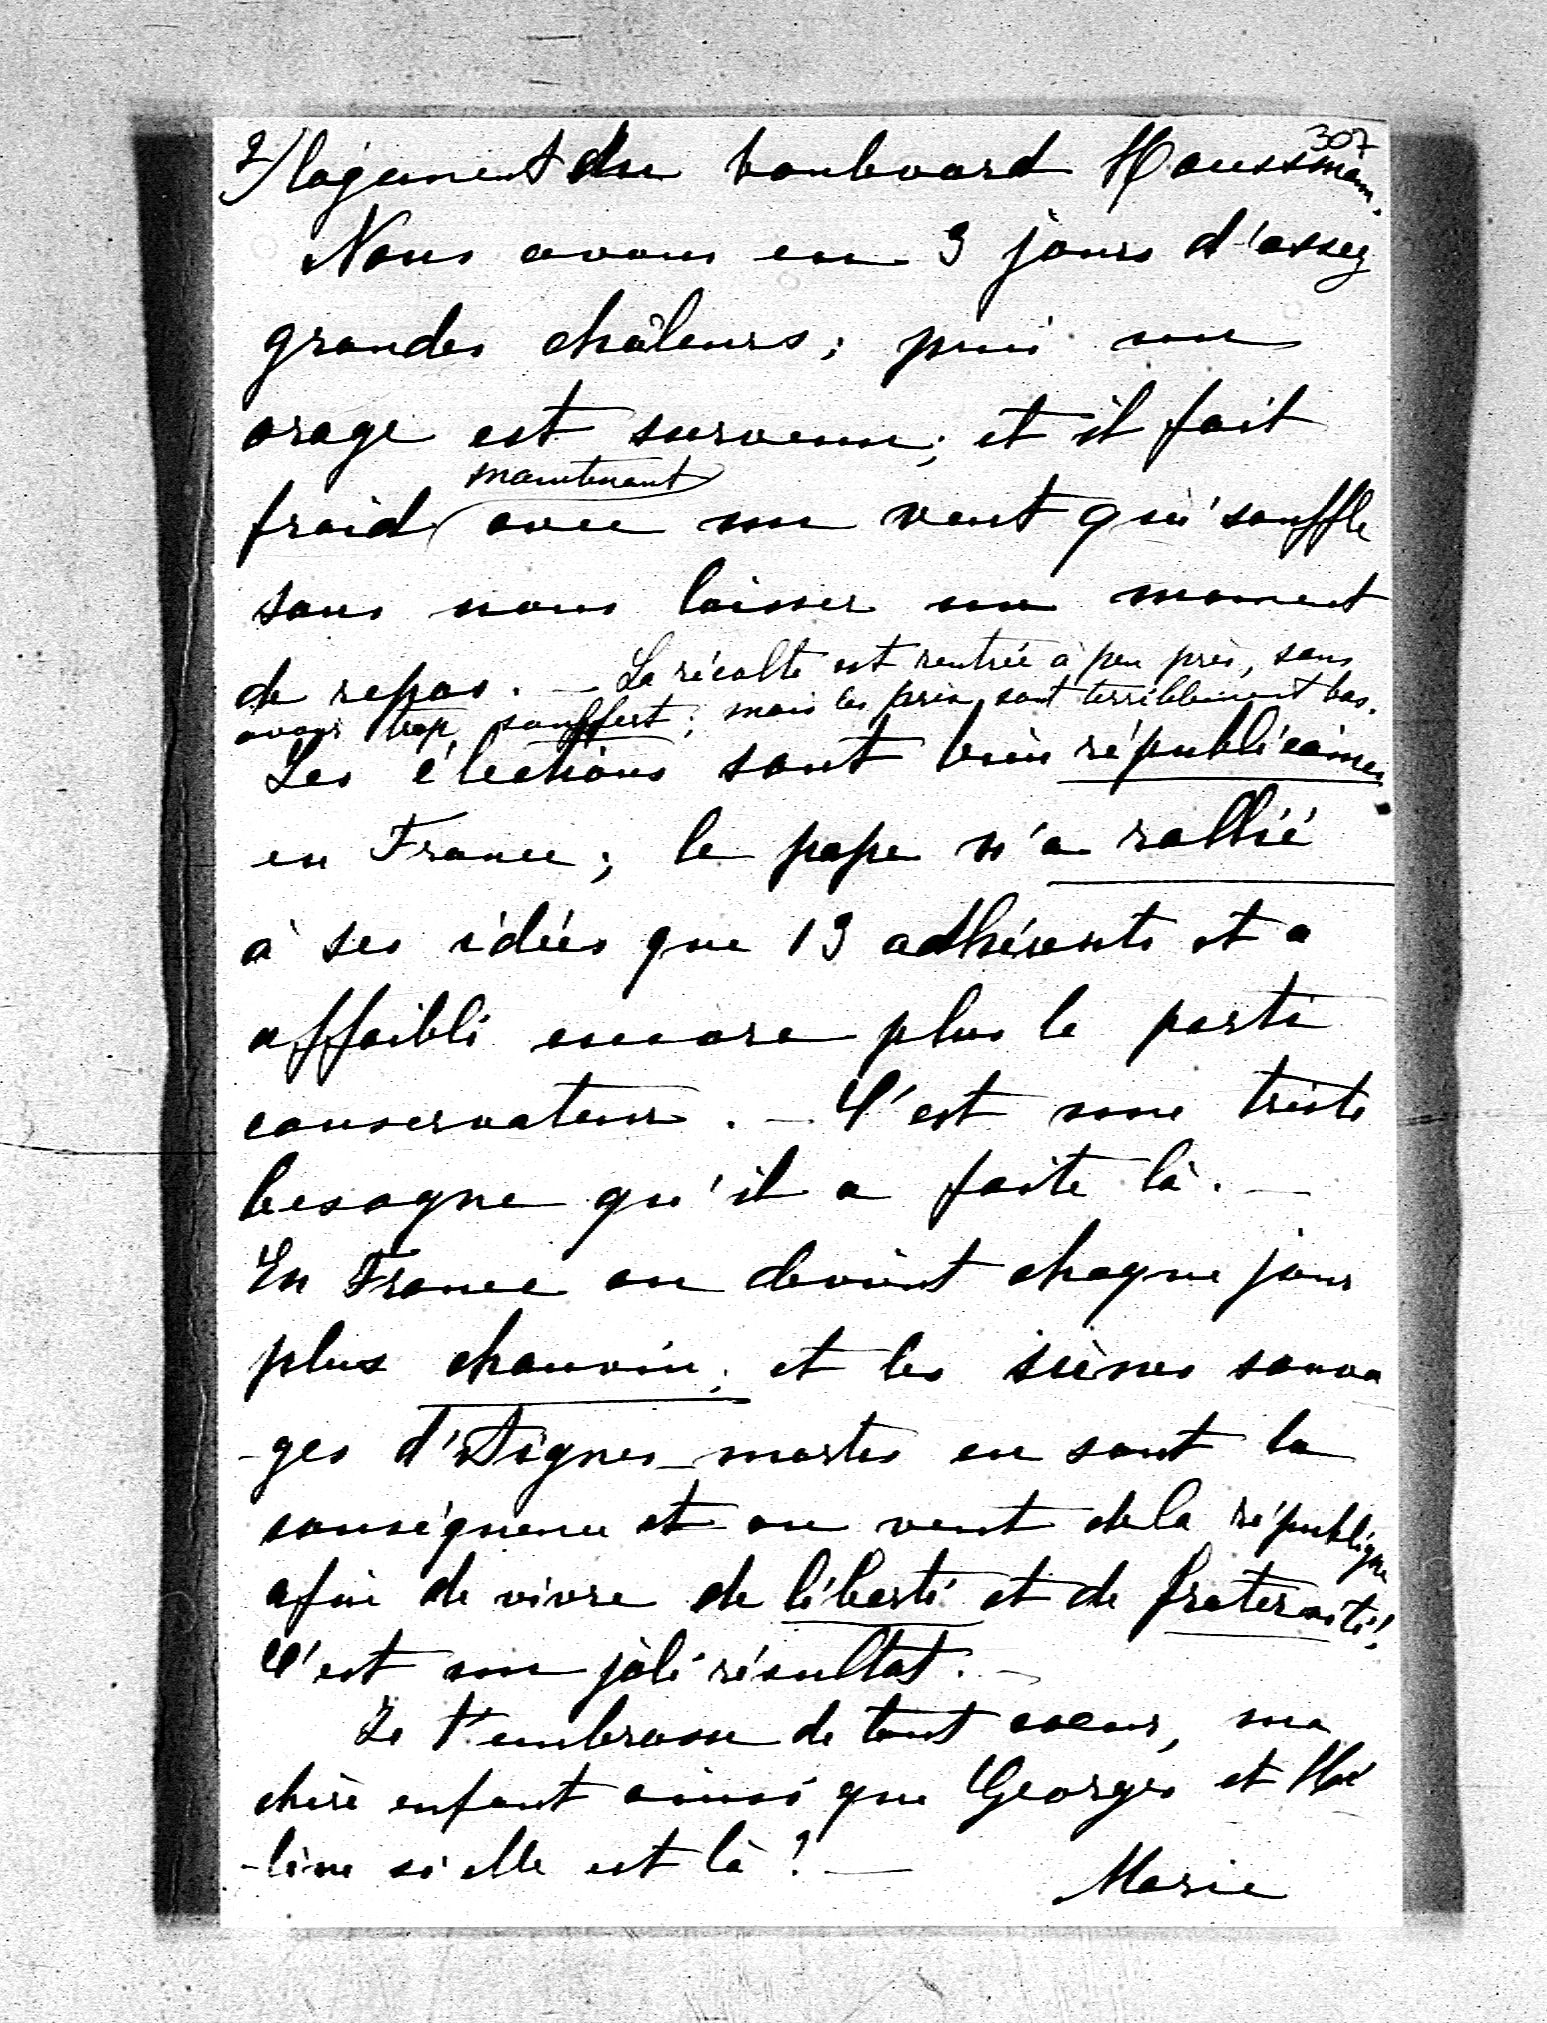 307
2/ logement du boulevard Haussmann.
Nous avons eu 3 jours d'assez
grandes châleurs; puis un
orage est survenu; et il fait
maintenant
froid avec un vent qui souffle
sans nous laisser un moment
de repos. — La récolte est rentrée à peu près, sans
avoir trop souffert; mais les prix sont terriblement bas.
Les élections sont bien républicaines
en France; le pape n'a rallié
à ses idées que 13 adhérents et a
affaibli encore plus le parti
conservateur. — C'est une triste
besogne qu'il a faite là. —
En France on devient chaque jour
plus chauvin; et les scènes sauva
-ges d'Aigues-mortes en sont la
conséquence et on veut de la république
afin de vivre de liberté et de fraternité!
C'est un joli résultat. —
Je t'embrasse de tout coeur, ma
chère enfant ainsi que Georges et Hé
-lène si elle est là! —
Marie